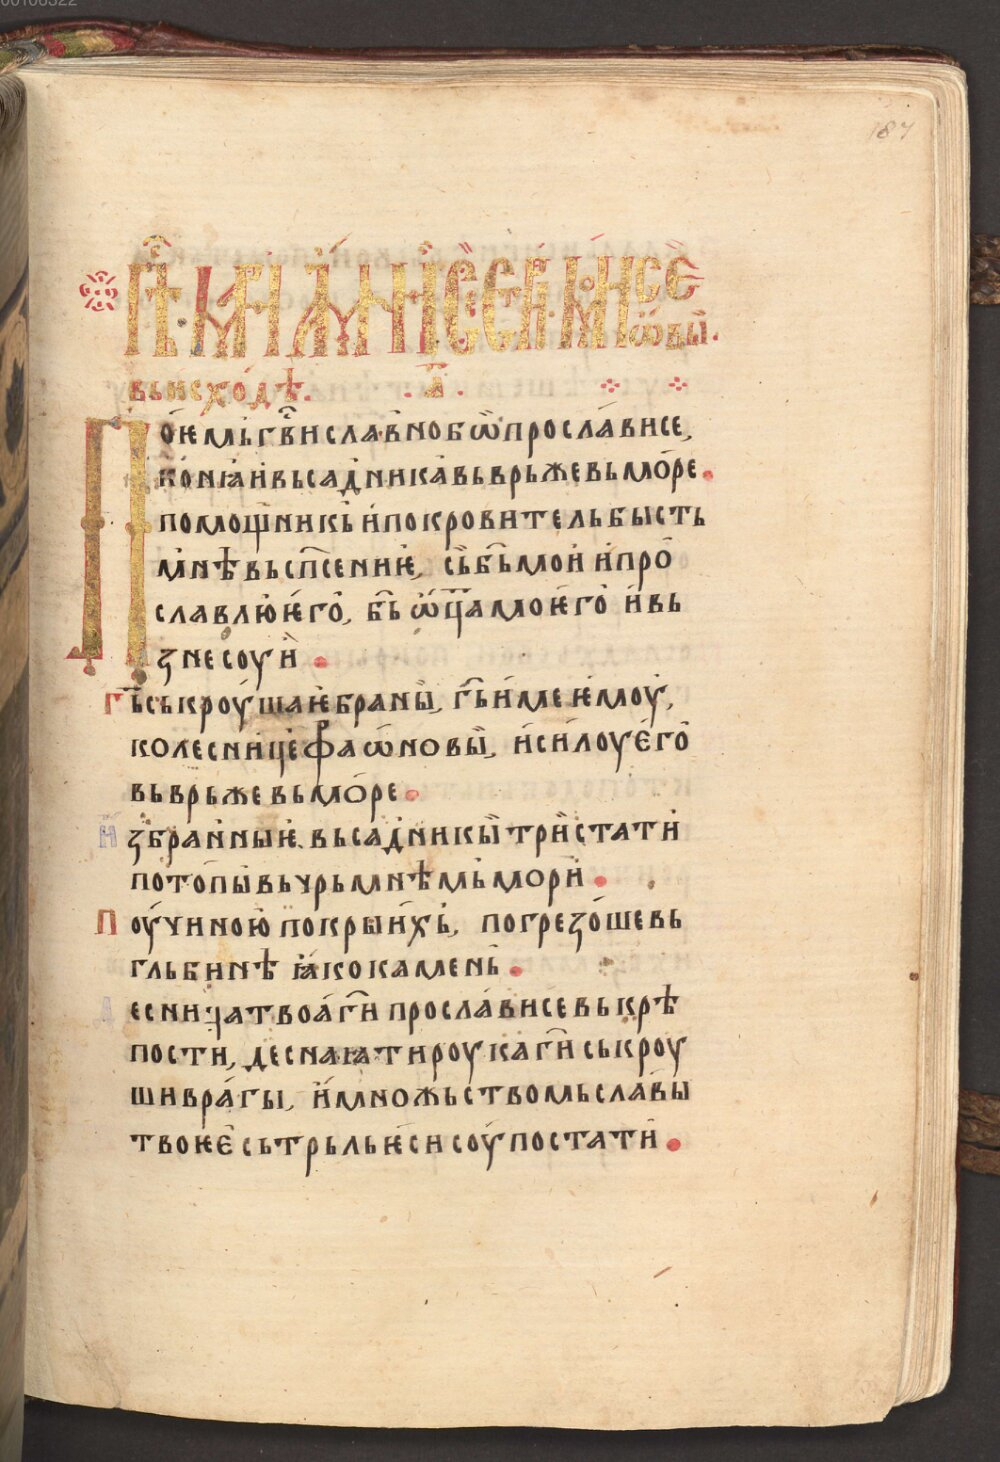 00106322
187
выисходѣ. . а҃ .
Поѥмьгв҃ииславнобѡ҆прослависе,
конꙗ҆ивьсадникавьврьжевьморе.
помощникьипокровительбысть
мнѣвьсп҃сениѥ, сьб҃ьмои ипро
славлюѥго, б҃ь ѿц҃амоѥго ивь
знесоуи .
Гь҃ськроушаѥбраны, г҃ьимеѥмоу,
колесницефаѡновы, исилоуѥго
вьврьжевьморе.
Избранныѥ.вьсадникытристати
потопывьчрьмнѣмьмори .
Поучиноюпокрыихь, погрезошевь
гльбинѣ ꙗкокамень .
Десницатвоаг҃ипрослависевькрѣ
пости, деснаꙗтироукаг҃иськроу
шиврагы, имножьствомьславы
твоѥесьтрьльѥсисоупостати .